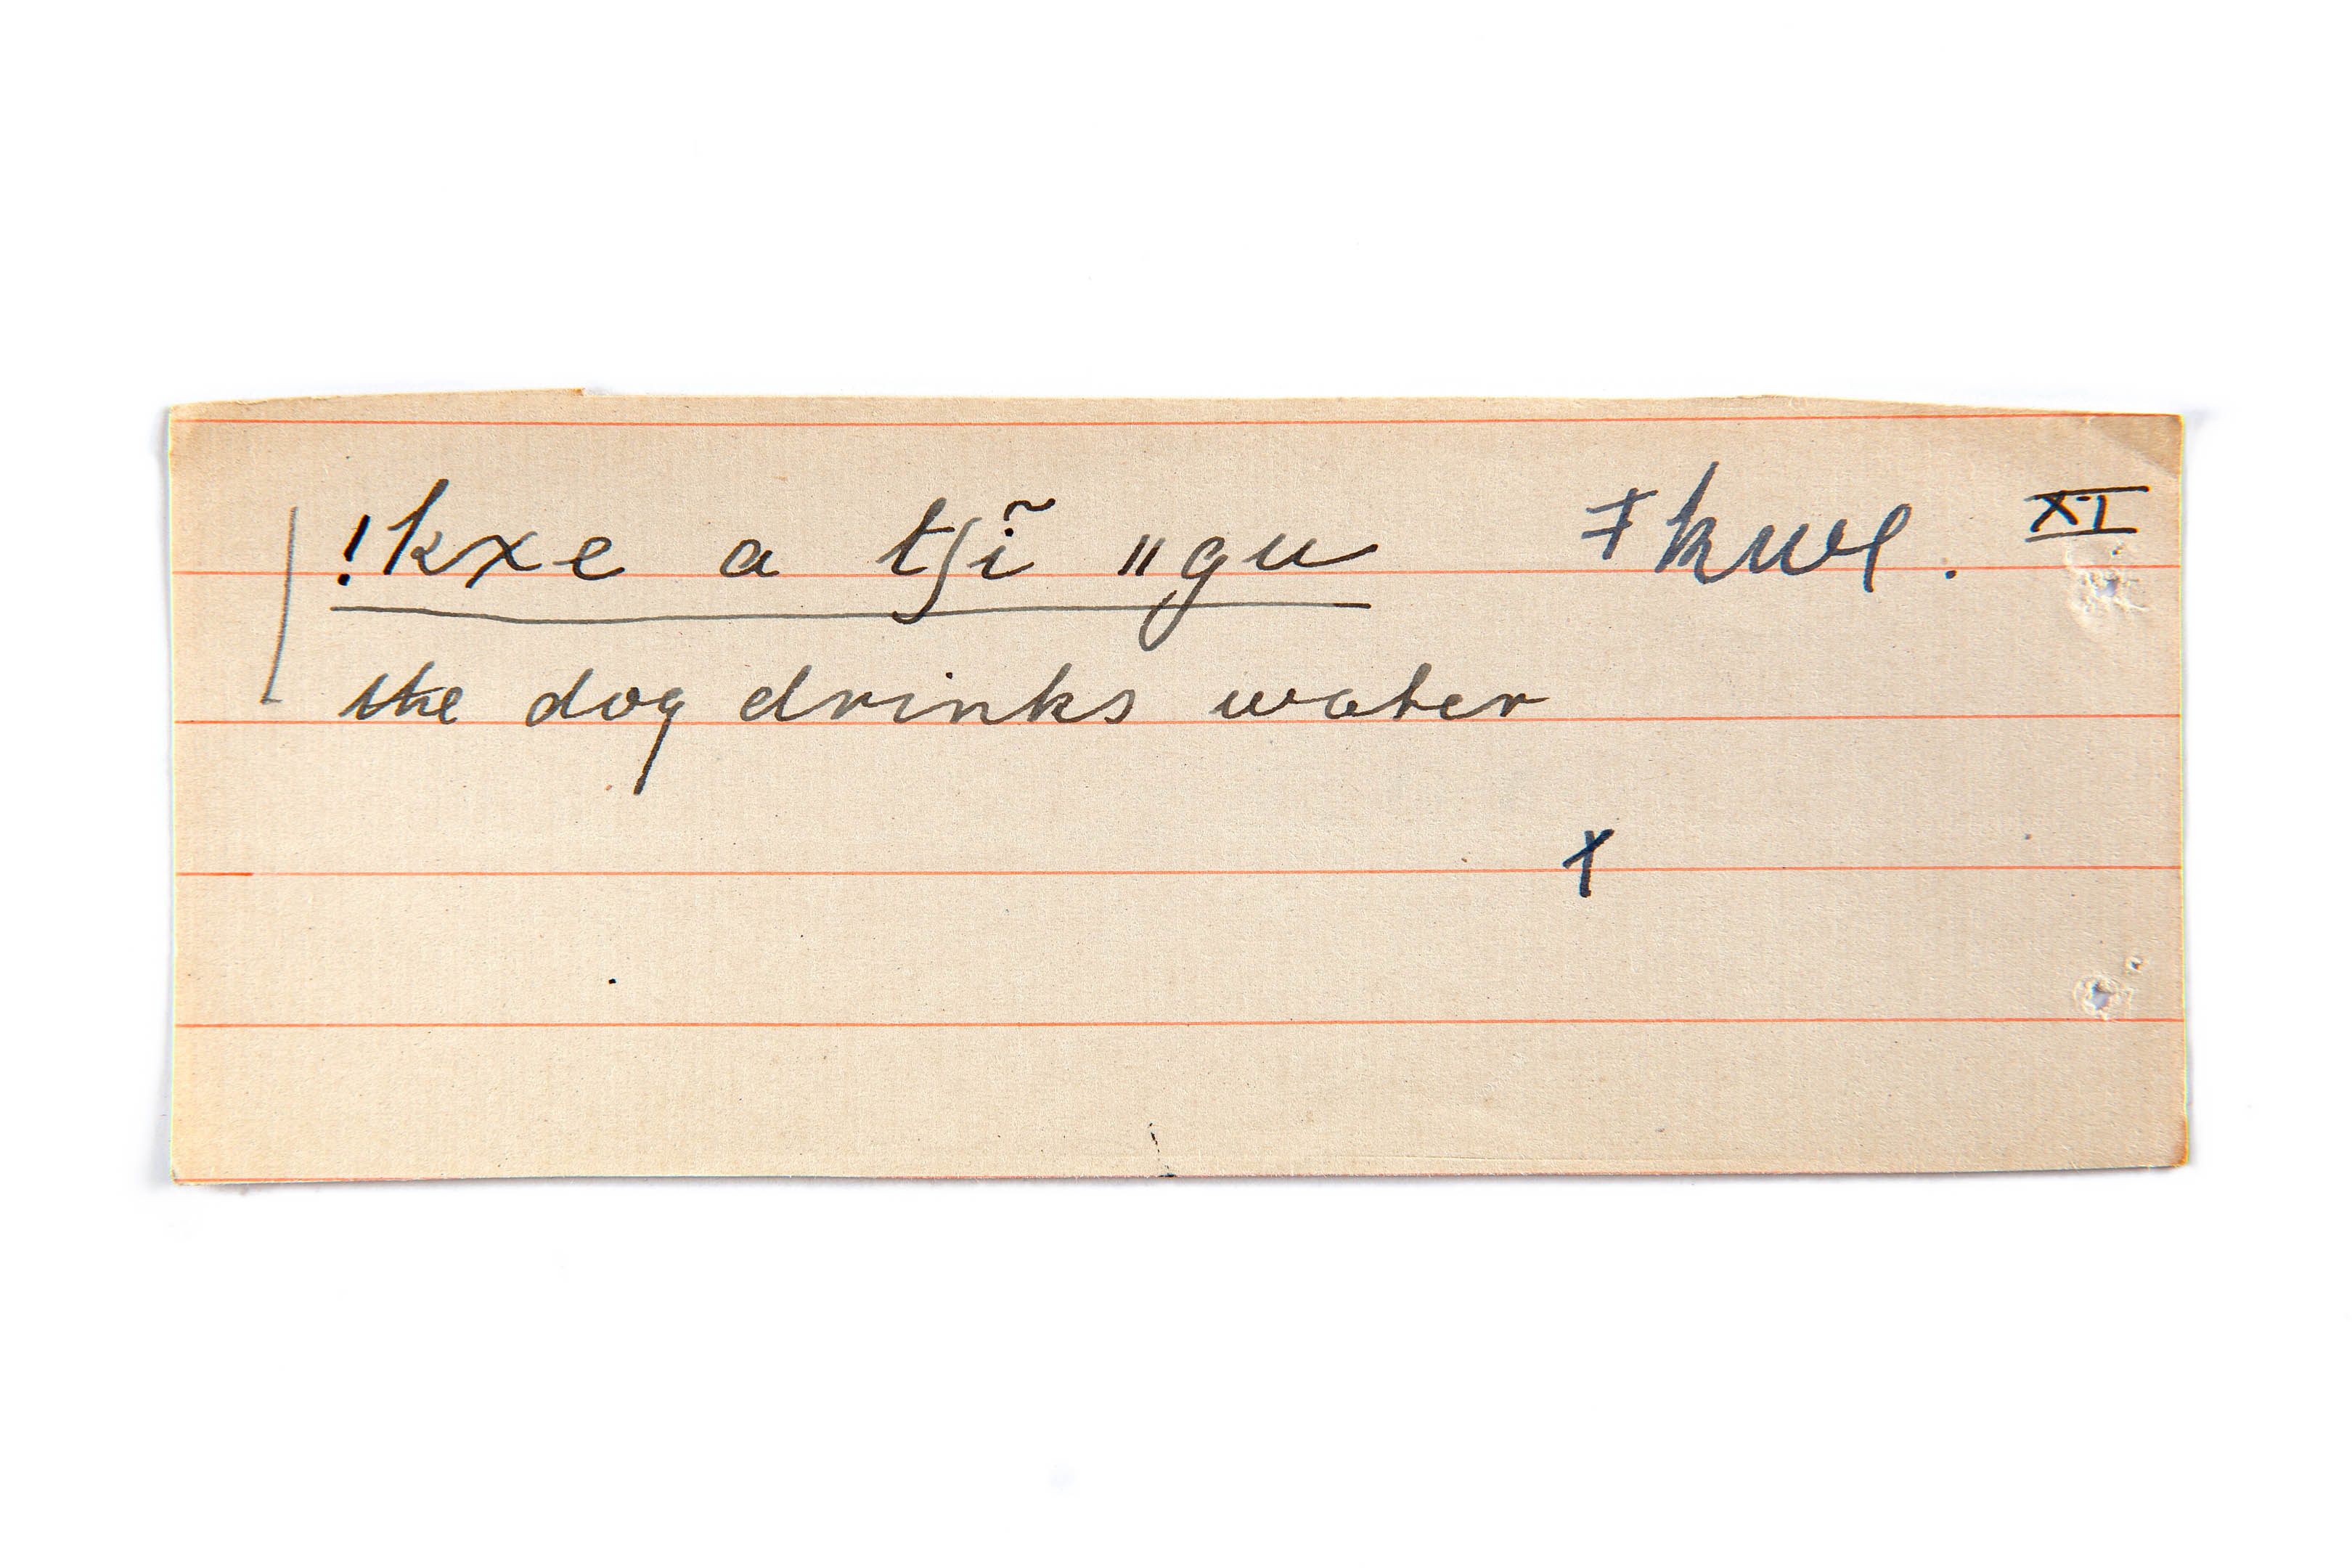 !kxe a tʃĩ ǁgu ǂkwe. XI
the dog drinks water
x